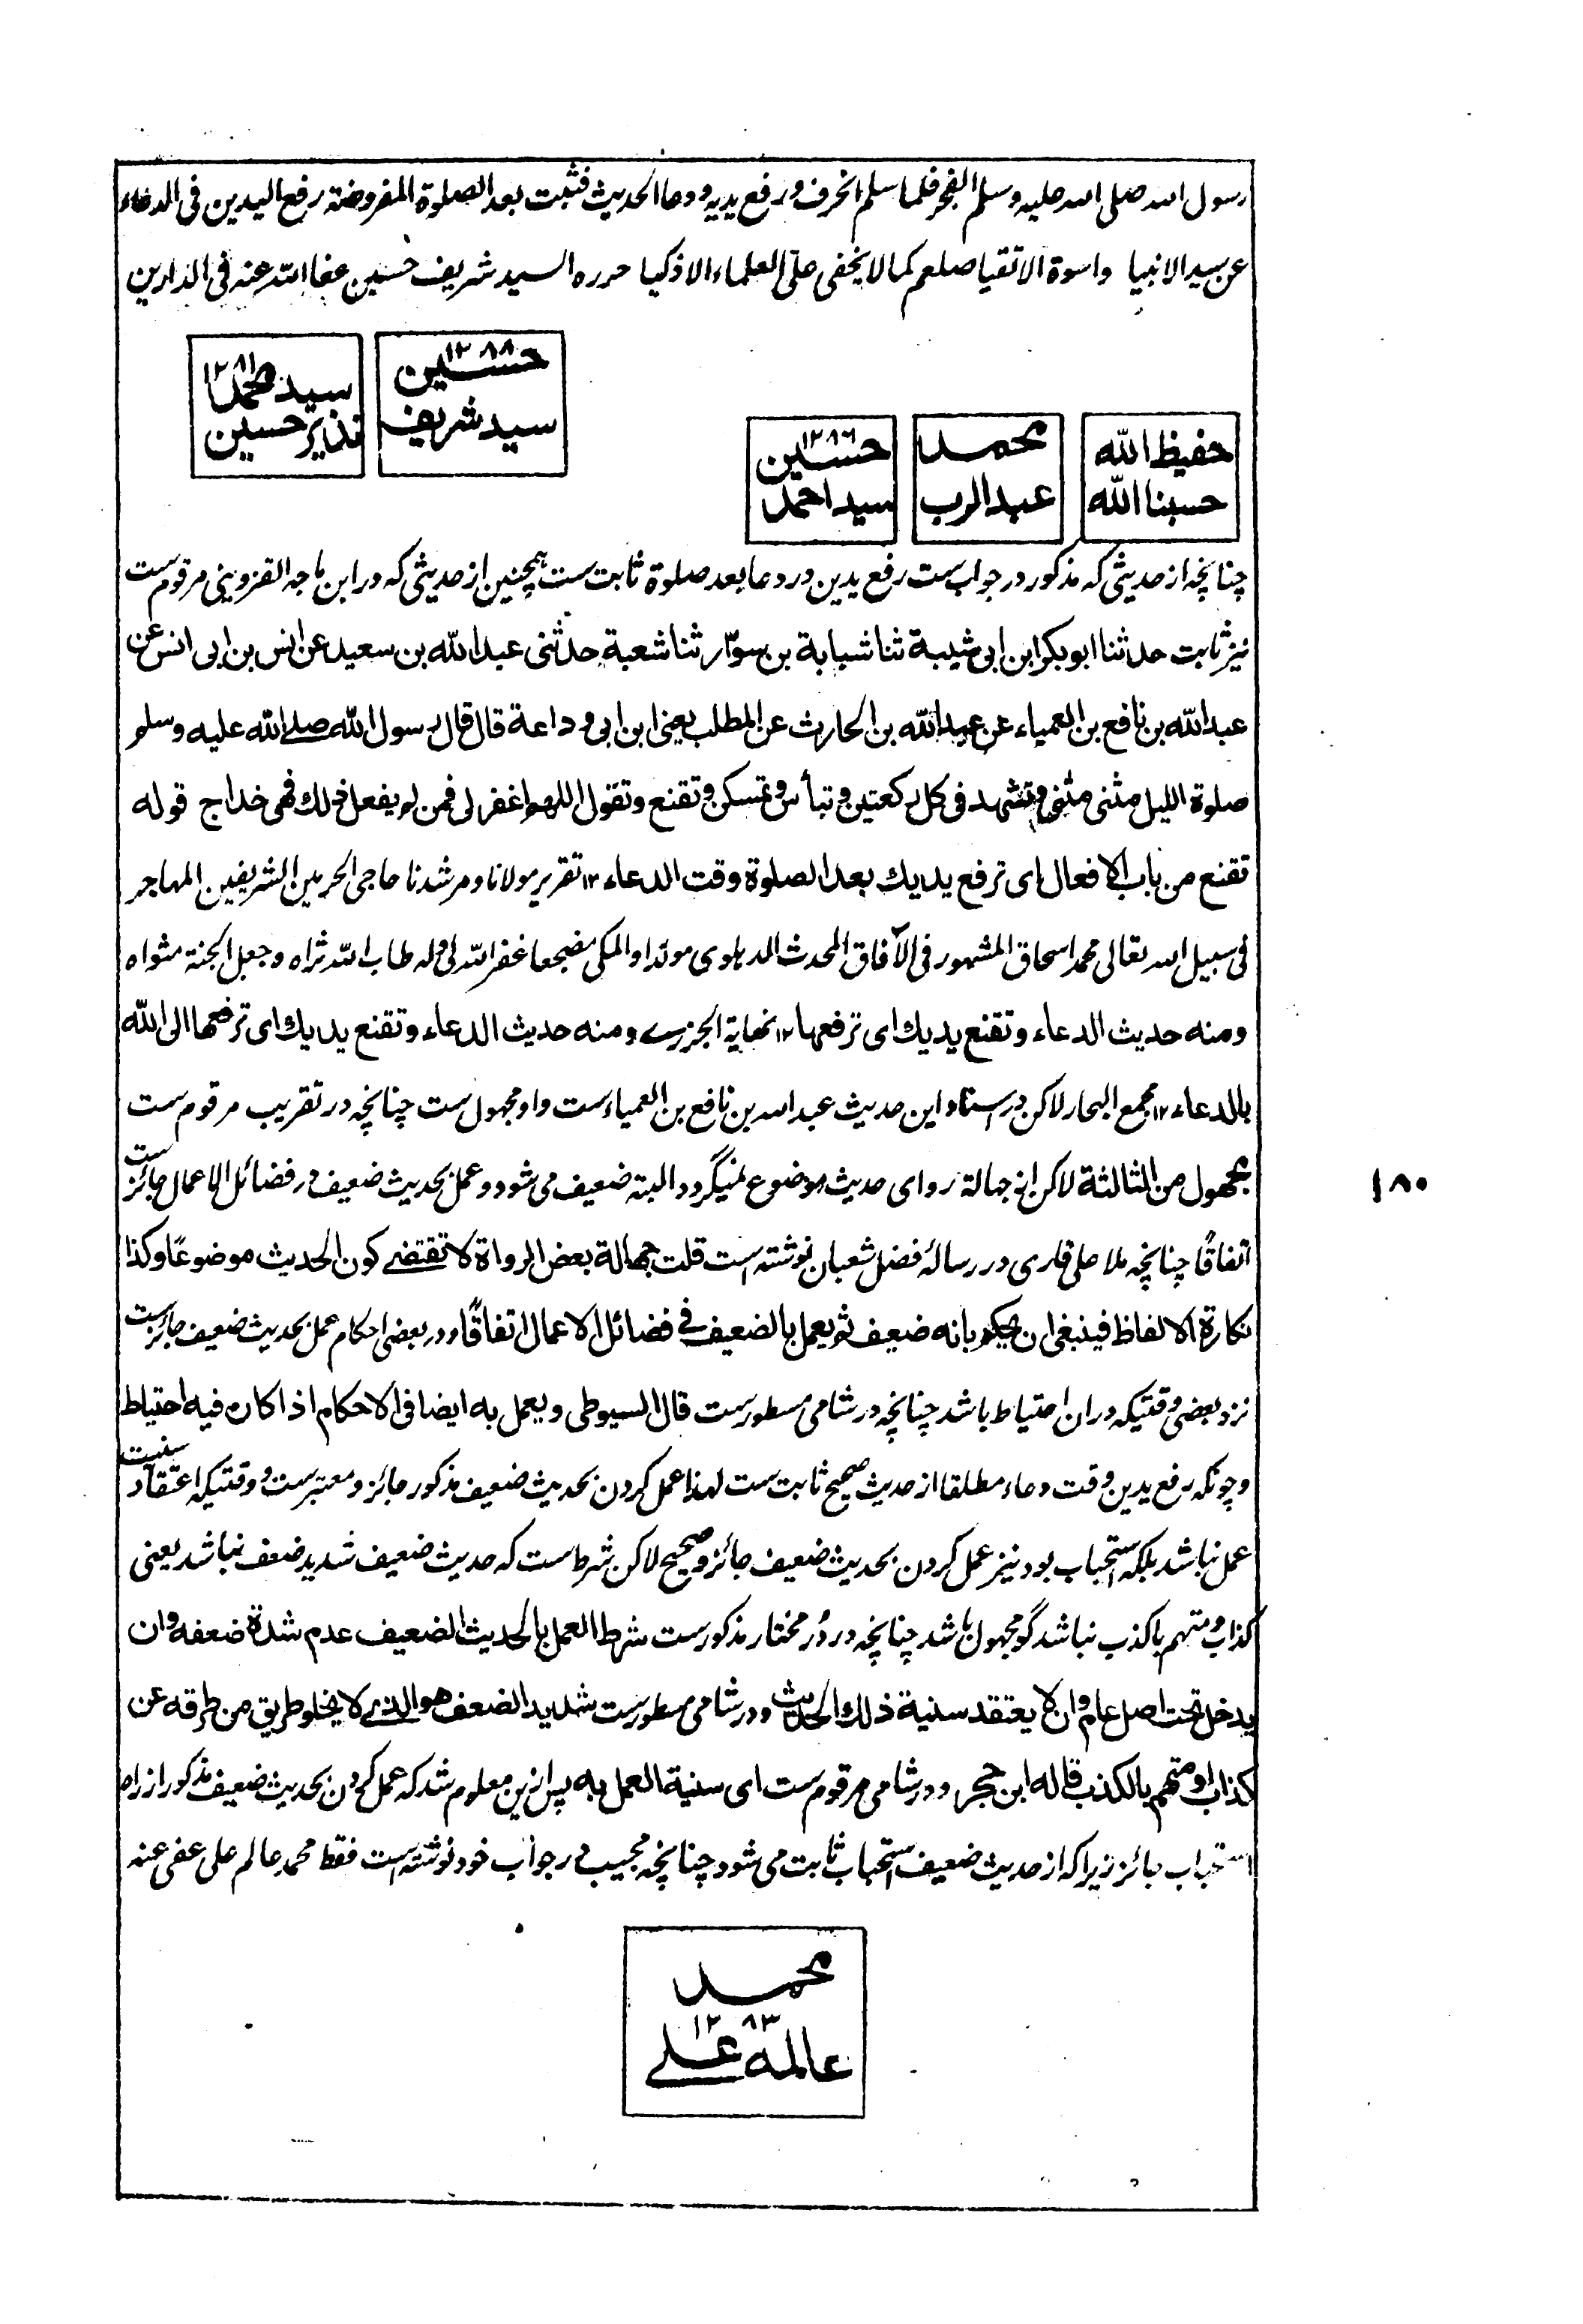 رسول الله صلی الله علیه وسلم الفجر فلما سلم انحرف ورفع یدیه ودعا الحدیث فثبت بعد الصلوة المفروضة رفع الیدین فی الدعاء
عن سید الانبیا واسوة الاتقیا صلعم کما لا یخفی علی العلماء الاذکیا حرره السید شریف حسین عفا الله عنه فی الدارین
حفیظ الله حسبنا الله
محمد عبد الرب
حسین ۱۲۸۶ سید احمد
حسین ۱۲۸۸ سید شریف
سید محمد ۱۲۸۱ نذیر حسین
چنانچه از حدیثی که مذکور در جواب ست رفع یدین در دعا بعد صلوة ثابت ست همچنین از حدیثی که در ابن ماجه القزوینی مرقوم ست
نیز ثابت حدثنا ابو بکر ابن ابی شیبة ثنا شبابة بن سوّار ثنا شعبة حدثنی عبد الله بن سعید عن انس بن ابی انس عن
عبد الله بن نافع بن العمیاء عن عبد الله بن الحارث عن المطلب یعنی ابن ابی وداعة قال قال رسول الله صلی الله علیه وسلم
صلوة اللیل مثنی مثنی وتشهد فی کل رکعتین وتبأس وتمسکن وتقنع وتقول اللهم اغفر لی فمن لم یفعل ذلك فهی خداج قوله
تقنع من باب الافعال ای ترفع یدیك بعد الصلوة وقت الدعاء ۱۲ تقریر مولانا ومرشدنا حاجی الحرمین الشریفین المهاجر
فی سبیل الله تعالی محمد اسحاق المشهور فی الآفاق المحدث الدهلوی مولدا والمکی مضجعا غفر الله لی وله طاب الله ثراه وجعل الجنة مثواه
ومنه حدیث الدعاء وتقنع یدیك ای ترفعها ۱۲ نهایة الجزری ومنه حدیث الدعاء وتقنع یدیك ای ترفعها الی الله
بالدعاء ۱۲ مجمع البحار لاکن در اسناد این حدیث عبد الله بن نافع بن العمیاء ست واو مجهول ست چنانچه در تقریب مرقوم ست
مجهول من الثالثة لاکن از جهالة روای حدیث موضوع نمیگردد البته ضعیف می شود وعمل بحدیث ضعیف در فضائل الاعمال جائز ست
اتفاقًا چنانچه ملا علی قاری در رسالۀ فضل شعبان نوشته است قلت جهالة بعض الرواة لا تقتضی کون الحدیث موضوعًا وکذا
نکارة الالفاظ فینبغی ان یحکم بانه ضعیف ثم یعمل بالضعیف فی فضائل الاعمال اتفاقًا ودر بعضی احکام عمل بحدیث ضعیف جائز ست
نزد بعضی وقتیکه دران احتیاط باشد چنانچه در شامی مسطور ست قال السیوطی ویعمل به ایضا فی الاحکام اذا کان فیه احتیاط
وچونکه رفع یدین وقت دعاء مطلقا از حدیث صحیح ثابت ست لهذا عمل کردن بحدیث ضعیف مذکور جائز ومعتبر ست وقتیکه اعتقاد سنیت
عمل نباشد بلکه استحباب بود نیز عمل کردن بحدیث ضعیف جائز وصحیح لاکن شرط ست که حدیث ضعیف شدید ضعف نباشد یعنی
کذاب ومتهم باکذب نباشد گو مجهول باشد چنانچه در دُر مختار مذکور ست شرط العمل بالحدیث الضعیف عدم شدة ضعفه وان
یدخل تحت اصل عام وان لا یعتقد سنیة ذلك الحدیث ودر شامی مسطور ست شدید الضعف هو الذی لا یخلو طریق من طرقه عن
کذاب او متهم بالکذب قاله ابن حجر ودر شامی مرقوم ست ای سنیة العمل به پس ازین معلوم شد که عمل کردن بحدیث ضعیف مذکور از راه
استحباب جائز زیرا که از حدیث ضعیف استحباب ثابت می شود چنانچه مجیب در جواب خود نوشته است فقط محمد عالم علی عفی عنه
محمد
۱۲۸۳
عالم علی
۱۸۰